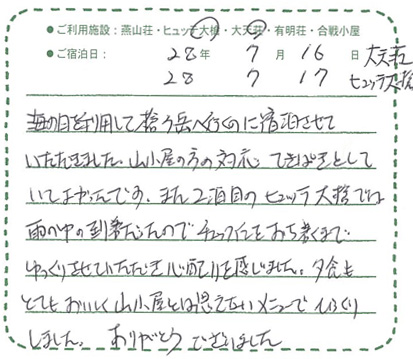 ●ご利用施設：燕山荘・ヒュッテ大槍・大天荘・有明荘・合戦小屋
●ご宿泊日： 28年 7月 16日 大天荘
28 7 17 ヒュッテ大槍
海の日を利用して槍ヶ岳へ行くのに宿泊させて
いただきました。山小屋の方の対応、てきぱきとして
いてよかったです。また2泊目のヒュッテ大槍では
雨の中の到着だったのでチェックインをおち着くまで
ゆっくりさせていただき心配りを感じました。夕食も
とてもおいしく山小屋とは思えないメニューでびっくり
しました。ありがとうございました